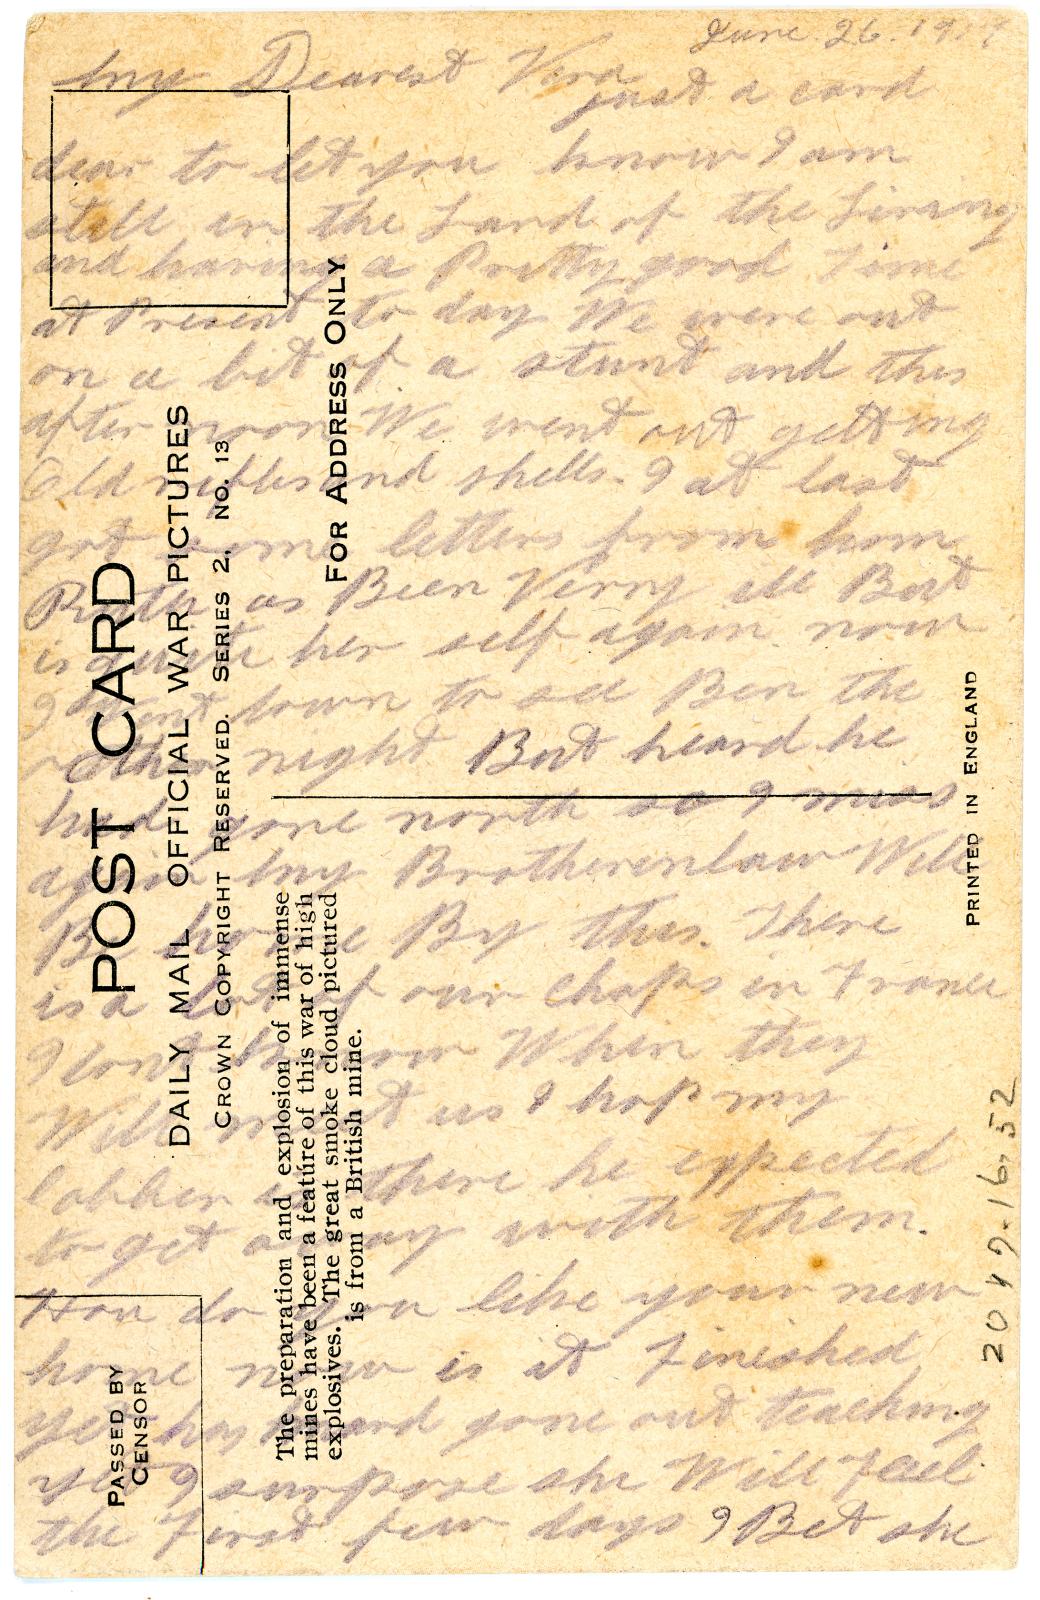 June. 26. 1917
My Dearest Vera
just a card
dear to let you know I am
still in the Land of the Living
and having a Pretty good Time
at Present to day We were out
on a bit of a stunt and this
after noon We went out getting
Old nibbs and shells. I at last
got some letters from home
as Been Verry ill But
is quite her self again now
I went down to see Ben the
other night But heard he
had gone north so I miss
again my Brotherenlaw Will
Be home By this. There
is a lot of our chaps in France
I dont know When they
Will meet us I hop my
cobber is there he expected
to get away with them.
How do you like your new
home now is it Finished
yet has gone out teaching
yet I surpose she Will Feel
the First few days I Bet she
POST CARD
DAILY MAIL OFFICIAL WAR PICTURES
CROWN COPYRIGHT RESERVED. SERIES 2, NO. 13
FOR ADDRESS ONLY
The preparation and explosion of immense
mines have been a feature of this war of high
explosives. The great smoke cloud pictured
is from a British mine.
PASSED BY
CENSOR
PRINTED IN ENGLAND
2019.16.52